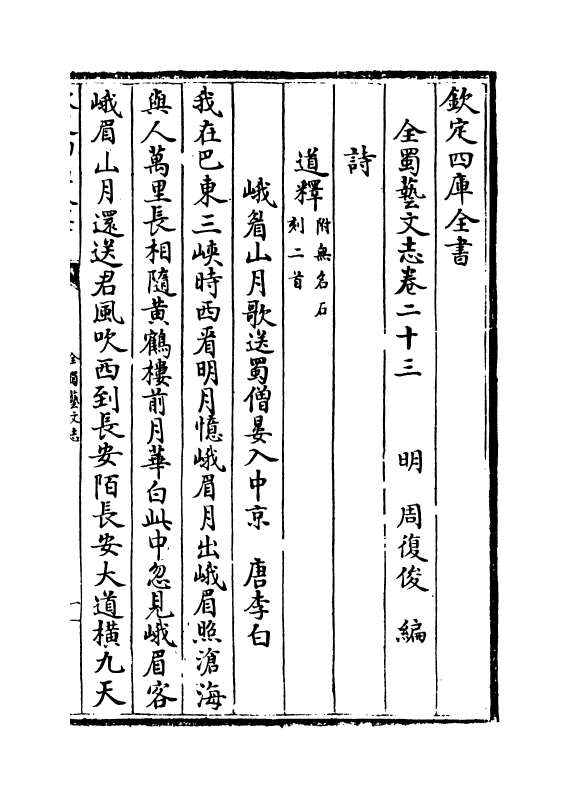 欽定四庫全書
全蜀藝文志卷二十三　　明　周復俊　編
詩
道釋附無名石刻二首
峨眉山月歌送蜀僧晏入中京　唐李白
我在巴東三峽時西看明月憶峨眉月出峨眉照滄海
與人萬里長相隨黃鶴樓前月華白此中忽見峨眉客
峨眉山月還送君風吹西到長安陌長安大道橫九天
全蜀藝文志